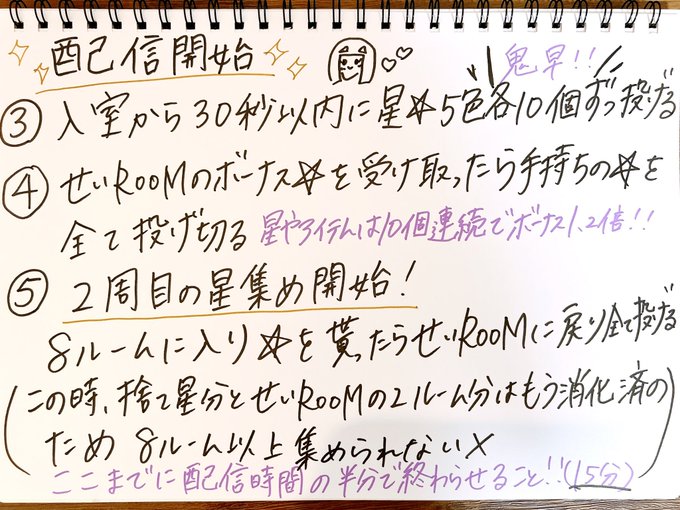 配信開始
鬼早!!
③ 入室から30秒以内に星☆5色各10個ずつ投げる
④ せいRooMのボーナス☆を受け取ったら手持ちの☆を
全て投げ切る 星やアイテムは10個連続でボーナス1.2倍!!
⑤ 2周目の星集め開始!
8ルームに入り☆を貰ったらせいRooMに戻り全て投げる
(この時、捨て星分とせいRooMの2ルーム分はもう消化済の
ため 8ルーム以上集められない×)
ここまでに配信時間の半分で終わらせること!!(15分)